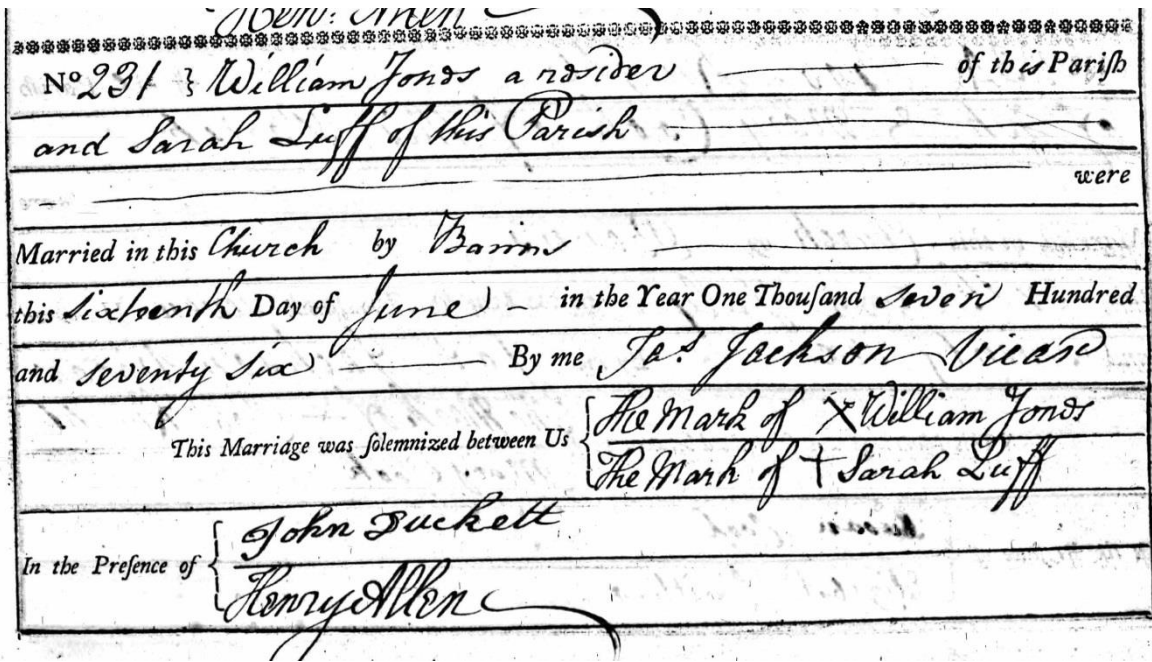 Henry Allen
Nº 231 } William Jones a resider of this Pariſh
and Sarah Luff of this Parish
were
Married in this Church by Banns
this sixteenth Day of June in the Year One Thouſand seven Hundred
and seventy six By me Jaˢ Jackson Vicar
This Marriage was ſolemnized between Us { The Mark of X William Jones
The Mark of † Sarah Luff
In the Preſence of { John Puckett
Henry Allen